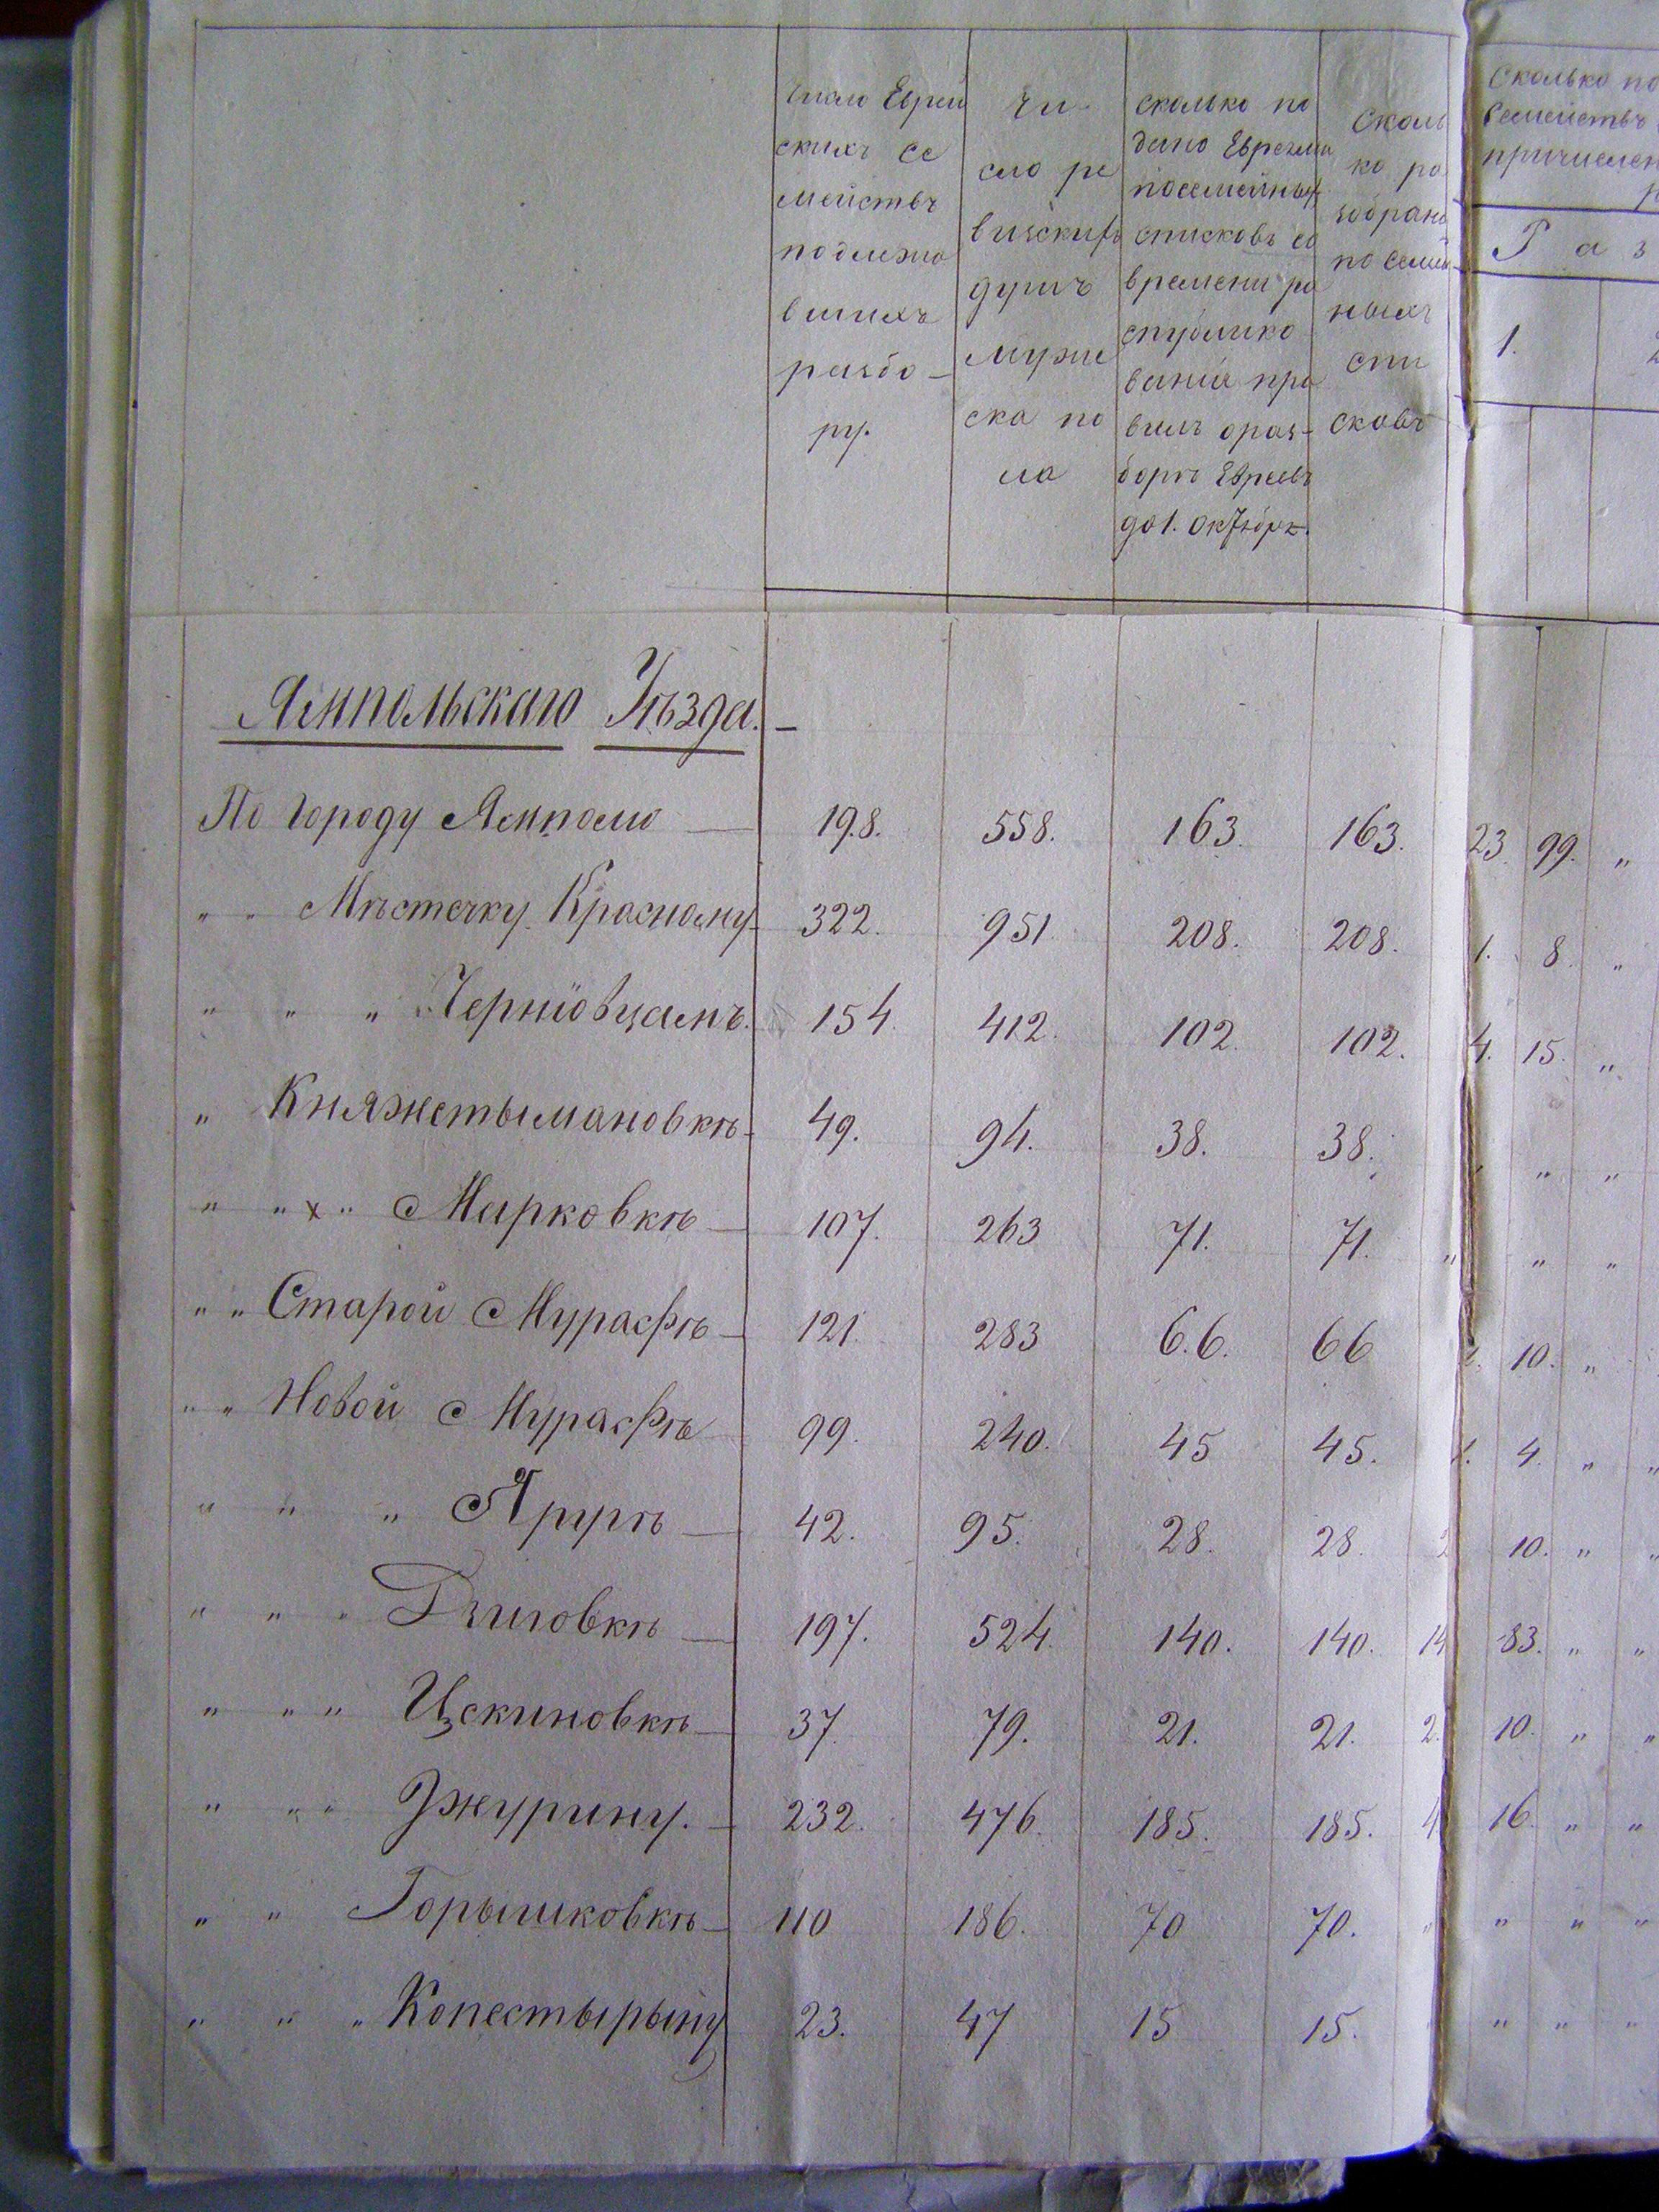 число Еврей
скихъ се
мействъ
подлежа
вшихъ
разбо-
ру.
Чи
сло ре
визскихъ
душъ
мужe
ска по
ла
сколько по
дано Евреями
посемейныхъ
списковъ со
времени ра
спублико
ванія пра
вилъ о раз-
борѣ Евреевъ
до 1. Октябрѧ.
Сколь
ко ра
зобрано
посемей
ныхъ
спи
сковъ
Сколько по
Семействъ
причислен
Р а з
1.
Ямпольскаго Уѣзда.
По городу Ямполю 198. 558. 163. 163. 23. 99. „
„ „ Мѣстечку Красному 322. 951 208. 208. 1. 8. „
„ „ „ Черніовцамъ. 154. 412. 102. 102. 4. 15. „
„ Княжетымановкѣ 49. 94. 38. 38. „ „
„ „ х „ Марковкѣ 107. 263 71. 71. „ „ „
„ „ Старой Мурафѣ 121. 283 66. 66 10. „
„ „ Новой Мурафѣ 99. 240. 45 45. 4. „ „
„ „ „ Яругѣ 42. 95. 28. 28. 10. „ „
„ „ „ Дзиговкѣ 197. 524. 140. 140. 14 83. „ „
„ „ „ Цекиновкѣ 37. 79. 21. 21. 2. 10. „ „
„ „ „ Джурину. 232. 476. 185. 185. 4 16. „ „
„ „ Горышковкѣ 110 186. 70 70. „ „ „ „
„ „ „ Копестырыну 23. 47 15 15. „ „ „